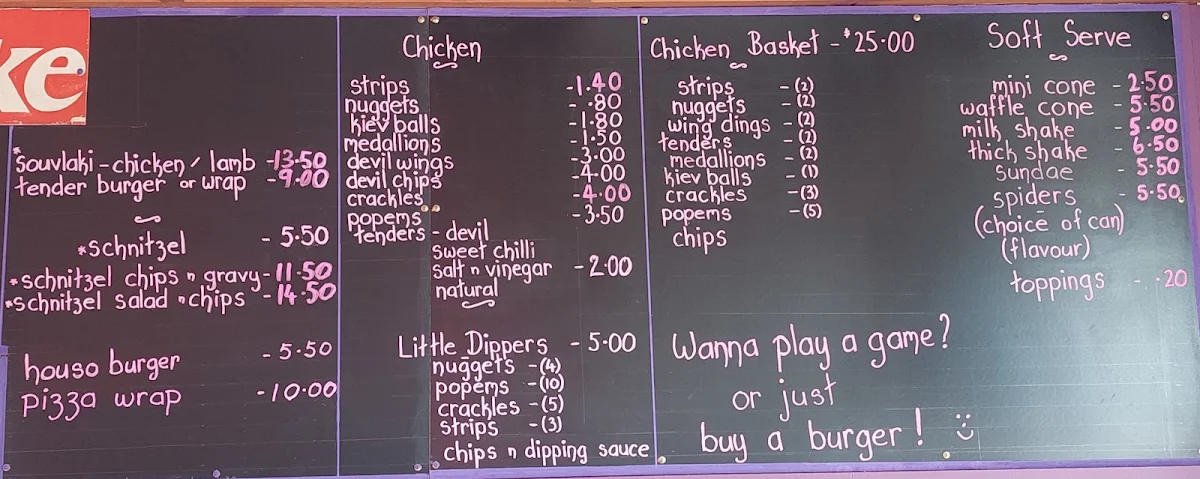 ke
*souvlaki - chicken / lamb -13.50
tender burger or wrap -9.00
*schnitzel - 5.50
*schnitzel chips n gravy - 11.50
*schnitzel salad n chips - 14.50
houso burger - 5.50
pizza wrap -10.00
Chicken
strips -1.40
nuggets - .80
kiev balls -1.80
medallions -1.50
devil wings -3.00
devil chips -4.00
crackles -4.00
popems -3.50
tenders - devil
sweet chilli
salt n vinegar - 2.00
natural
Little Dippers - 5.00
nuggets -(4)
popems -(10)
crackles -(5)
strips -(3)
chips n dipping sauce
Chicken Basket - $25.00
strips -(2)
nuggets -(2)
wing dings -(2)
tenders -(2)
medallions -(2)
kiev balls -(1)
crackles -(3)
popems -(5)
chips
Soft Serve
mini cone - 2.50
waffle cone - 5.50
milk shake - 5.00
thick shake - 6.50
sundae - 5.50
spiders - 5.50
(choice of can)
(flavour)
toppings - .20
Wanna play a game?
or just
buy a burger!